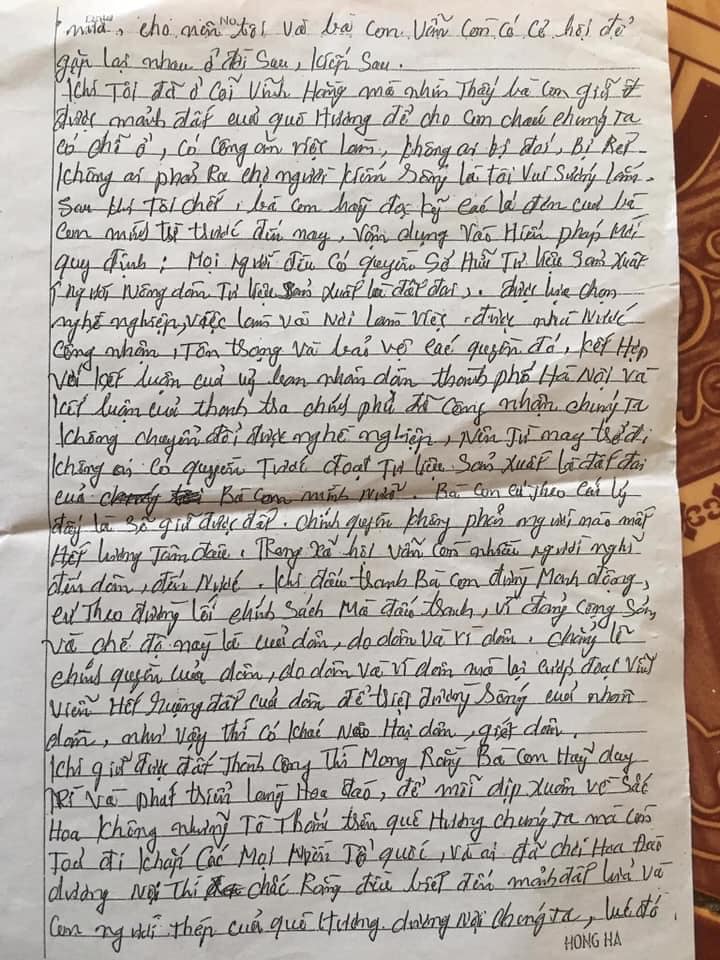 nữa, cho nên tôi và bà con vẫn còn có cơ hội để
gặp lại nhau ở đời sau, kiếp sau.
Khi Tôi đã ở Cõi Vĩnh Hằng mà nhìn Thấy bà con giữ
được mảnh đất của quê Hương để cho con cháu chúng ta
có chỗ ở, có công ăn việc làm, không ai bị đói, Bị Rét
không ai phải Ra chợ người kiếm sống là tôi Vui Sướng lắm.
Sau khi Tôi chết, bà con hãy đọc kỹ các lá đơn của bà
con mình từ trước đến nay, vận dụng Vào Hiến pháp Mới
quy định: Mọi Người đều có quyền Sở Hữu Tư liệu Sản Xuất
người Nông dân Tư liệu Sản xuất là đất đai, được lựa chọn
nghề nghiệp, việc làm và Nơi làm việc được nhà Nước
công nhận, Tôn trọng và bảo vệ các quyền đó, kết Hợp
với kết luận của uỷ ban nhân dân thành phố Hà Nội và
kết luận của thanh tra chính phủ đã công nhận chúng ta
không chuyển đổi được nghề nghiệp, Nên Từ nay trở đi
không ai có quyền Tước đoạt Tư liệu Sản xuất là đất đai
của Bà Con mình Nữa. Bà con cứ theo cái lý
đấy là sẽ giữ được đất. Chính quyền không phải người nào mất
Hết lương Tâm đâu. Trong xã hội vẫn còn nhiều người nghĩ
đến dân, đến Nước. Khi đấu tranh Bà con đừng Manh động,
cứ Theo đường lối chính sách Mà đấu tranh, vì đảng Cộng Sản,
và chế độ này là của dân, do dân và vì dân. Chẳng lẽ
chính quyền của dân, do dân và vì dân mà lại cướp đoạt Vĩnh
Viễn Hết ruộng đất của dân để triệt đường Sống của nhân
dân, như vậy thì có khác Nào Hại dân, giết dân.
Khi giữ được đất Thành Công Thì Mong Rằng Bà Con Hãy duy
trì Và phát triển làng Hoa đào, để mỗi dịp xuân về Sắc
Hoa không những Tô Thắm trên quê Hương chúng ta mà còn
Toả đi khắp Các Mọi Miền Tổ quốc, và ai đã chơi Hoa Đào
dương Nội Thì chắc Rằng đều biết đến mảnh đất lửa và
con người thép của quê Hương dương Nội chúng ta, lúc đó
HONG HA